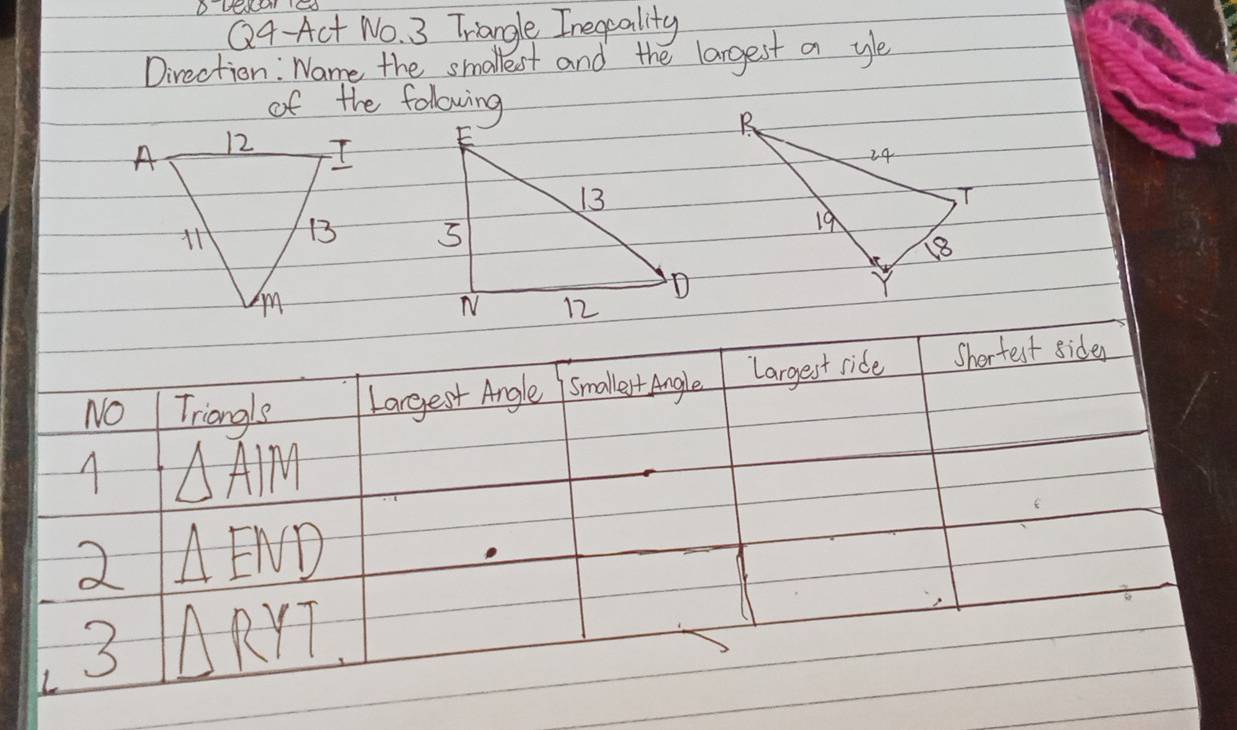 Q4-Act No.3 Triangle Ineqcality
Direction: Name the smallest and the largest a gle
of the following
A 12 I
11 13
M
E
5 13
N 12 D
R
24
19 T
18
Y
NO Triangls Largest Angle Smallest Angle Largest side Shortest sides
1 Δ AIM
2 Δ END
3 Δ RYT.